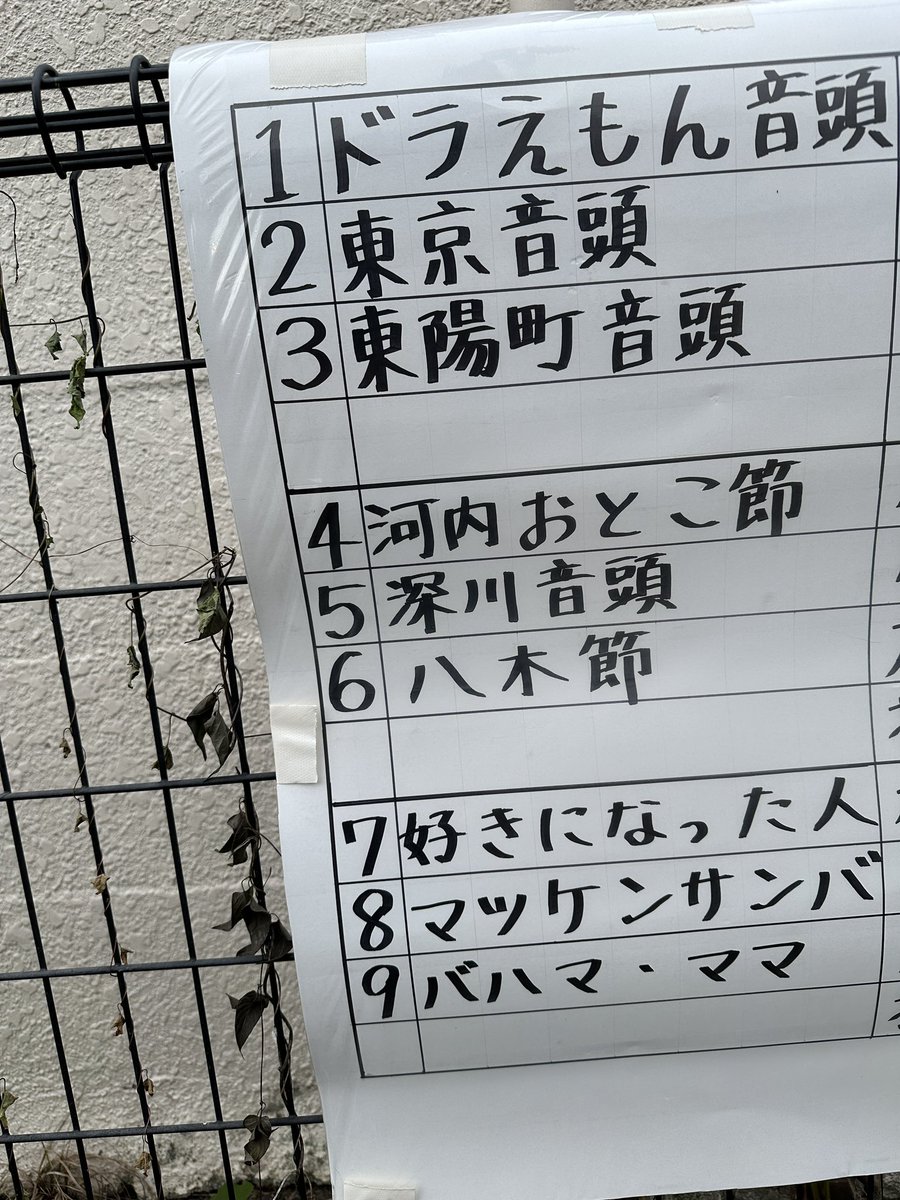 1 ドラえもん音頭
2 東京音頭
3 東陽町音頭
4 河内おとこ節
5 深川音頭
6 八木節
7 好きになった人
8 マツケンサンバ
9 バハマ・ママ